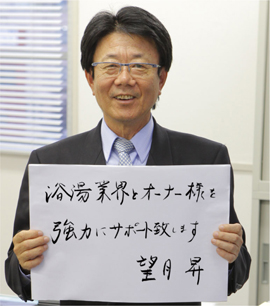 浴湯業界とオーナー様を
強力にサポート致します
望月 昇